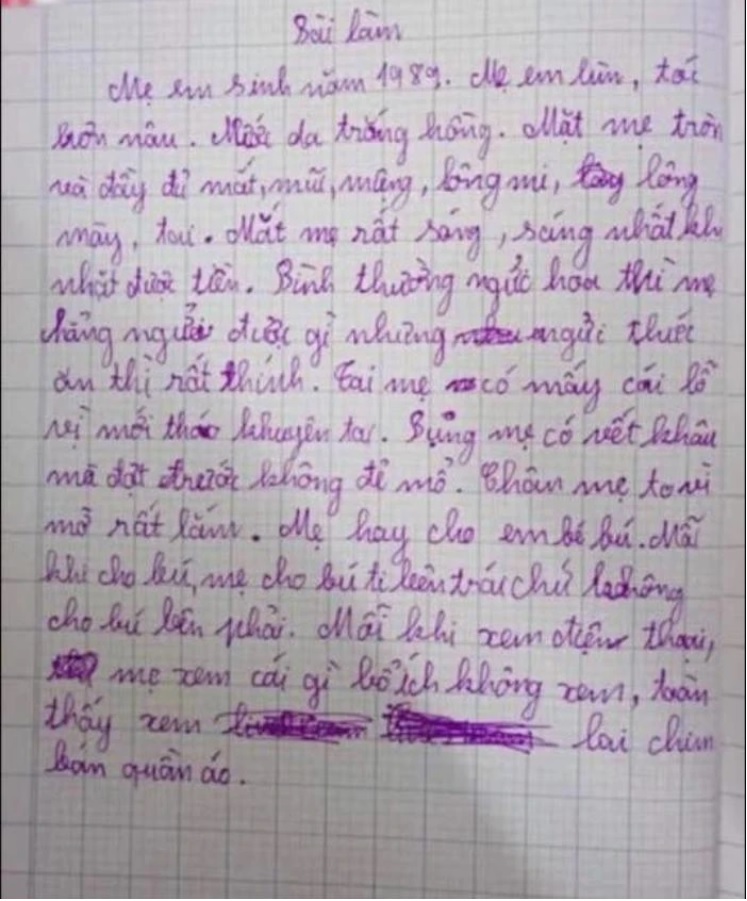 Bài làm
Mẹ em sinh năm 1989. Mẹ em lùn, tóc
hơn nâu. Nước da trắng hồng. Mặt mẹ tròn
và đầy đủ mắt, mũi, miệng, lông mi, lông
mày, tai. Mắt mẹ rất sáng, sáng nhất khi
nhặt được tiền. Bình thường ngửi hoa thì mẹ
chẳng ngửi được gì nhưng ngửi thức
ăn thì rất thính. Tai mẹ có mấy cái lỗ
vì mới tháo khuyên tai. Bụng mẹ có vết khâu
mà đợt trước không đi mổ. Chân mẹ to vì
mỡ rất lắm. Mẹ hay cho em bé bú. Mỗi
khi cho bú, mẹ cho bú ti bên trái chứ không
cho bú bên phải. Mỗi khi xem điện thoại,
mẹ xem cái gì bổ ích không xem, toàn
thấy xem lai chim
bán quần áo.